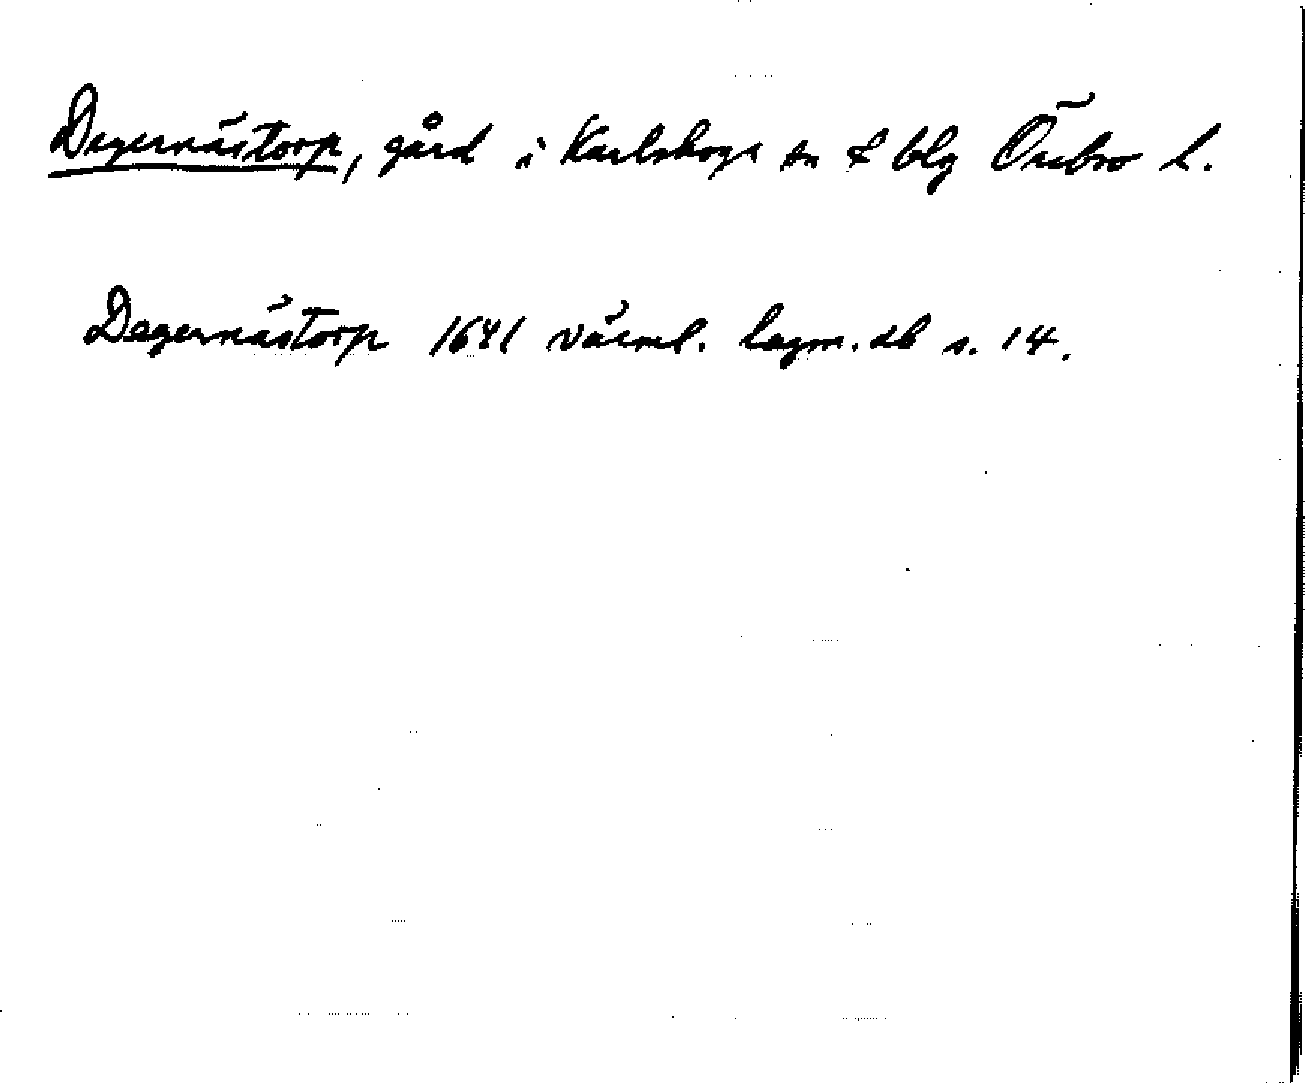 Degernästorp, gård i Karlskoga sn & blg Örebro l.
Degernästorp 1641 värml. lagm. db s. 14.